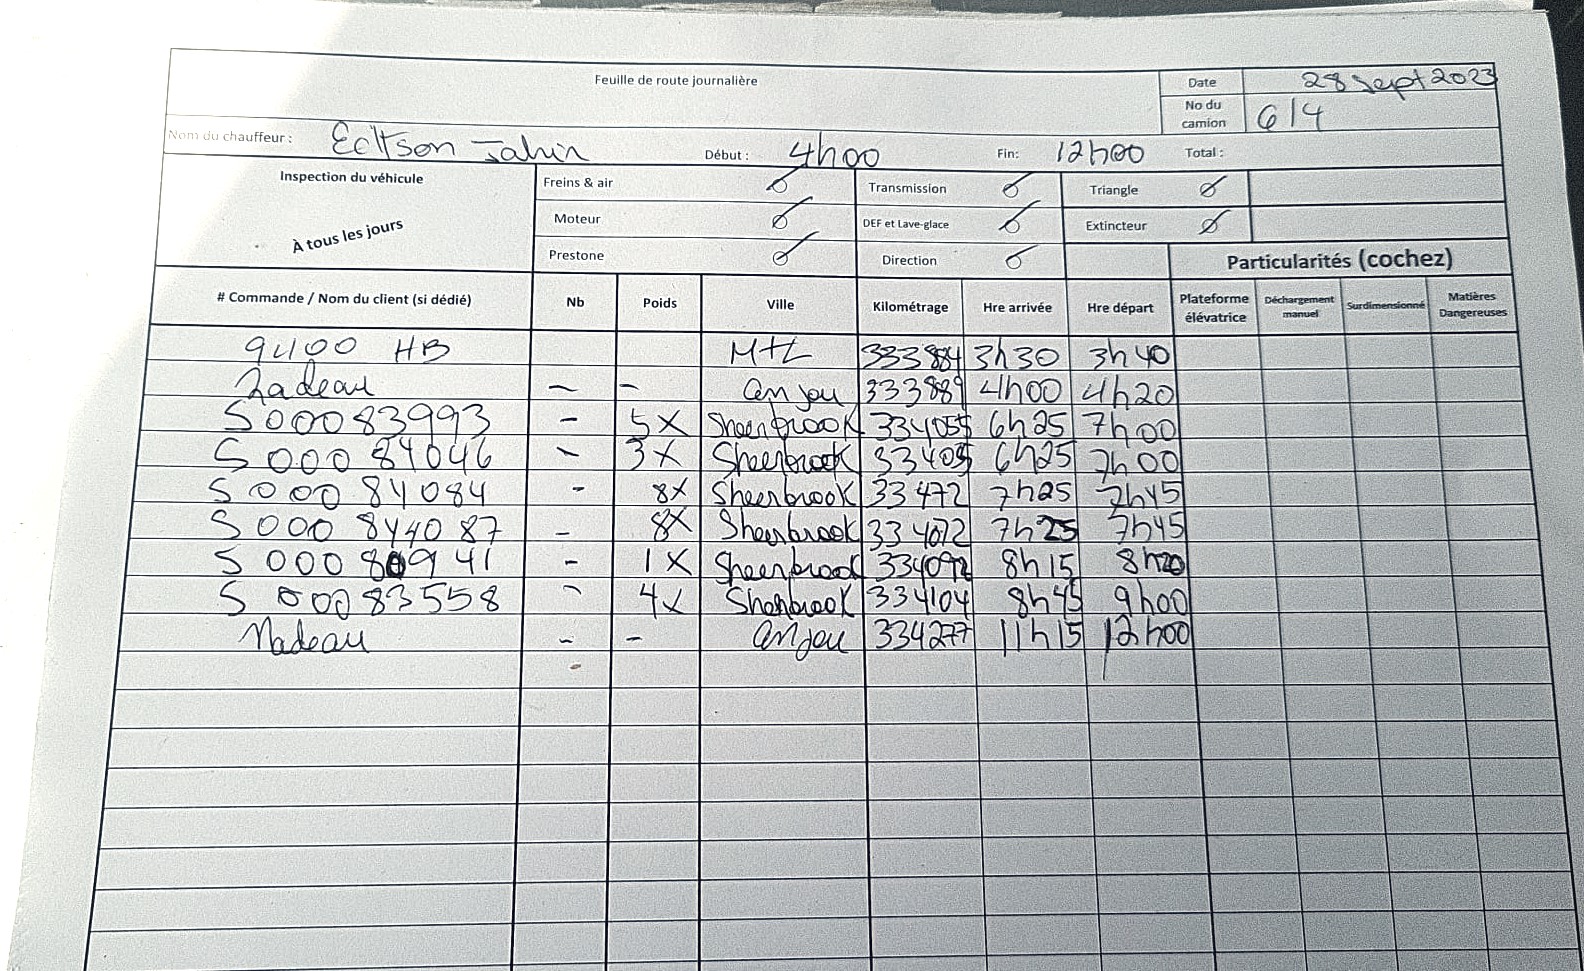 Feuille de route journalière
Date 28 Sept 2023
No du camion 614
Nom du chauffeur : Début : 4h00 Fin: 12h00 Total :
Inspection du véhicule
À tous les jours
Freins & air Transmission Triangle
Moteur DEF et Lave-glace Extincteur
Prestone Direction
Particularités (cochez)
# Commande / Nom du client (si dédié) Nb Poids Ville Kilométrage Hre arrivée Hre départ Plateforme élévatrice Déchargement manuel Surdimensionné Matières Dangereuses
9400 HB MtL 333884 3h30 3h40
Nadeau - - anjou 333889 4h00 4h20
S00083993 - 5X Sheerbrook 334055 6h25 7h00
S00084046 - 3X Sheerbrook 33405 6h25 7h00
S00084084 - 8X Sheerbrook 33472 7h25 7h45
S000844087 - 8X Sheerbrook 334072 7h25 7h45
S000 - 1X Sheerbrook 334092 8h15 8h20
S00083558 - 4X Sherbrook 334104 8h45 9h00
Nadeau - - anjou 334277 11h15 12h00